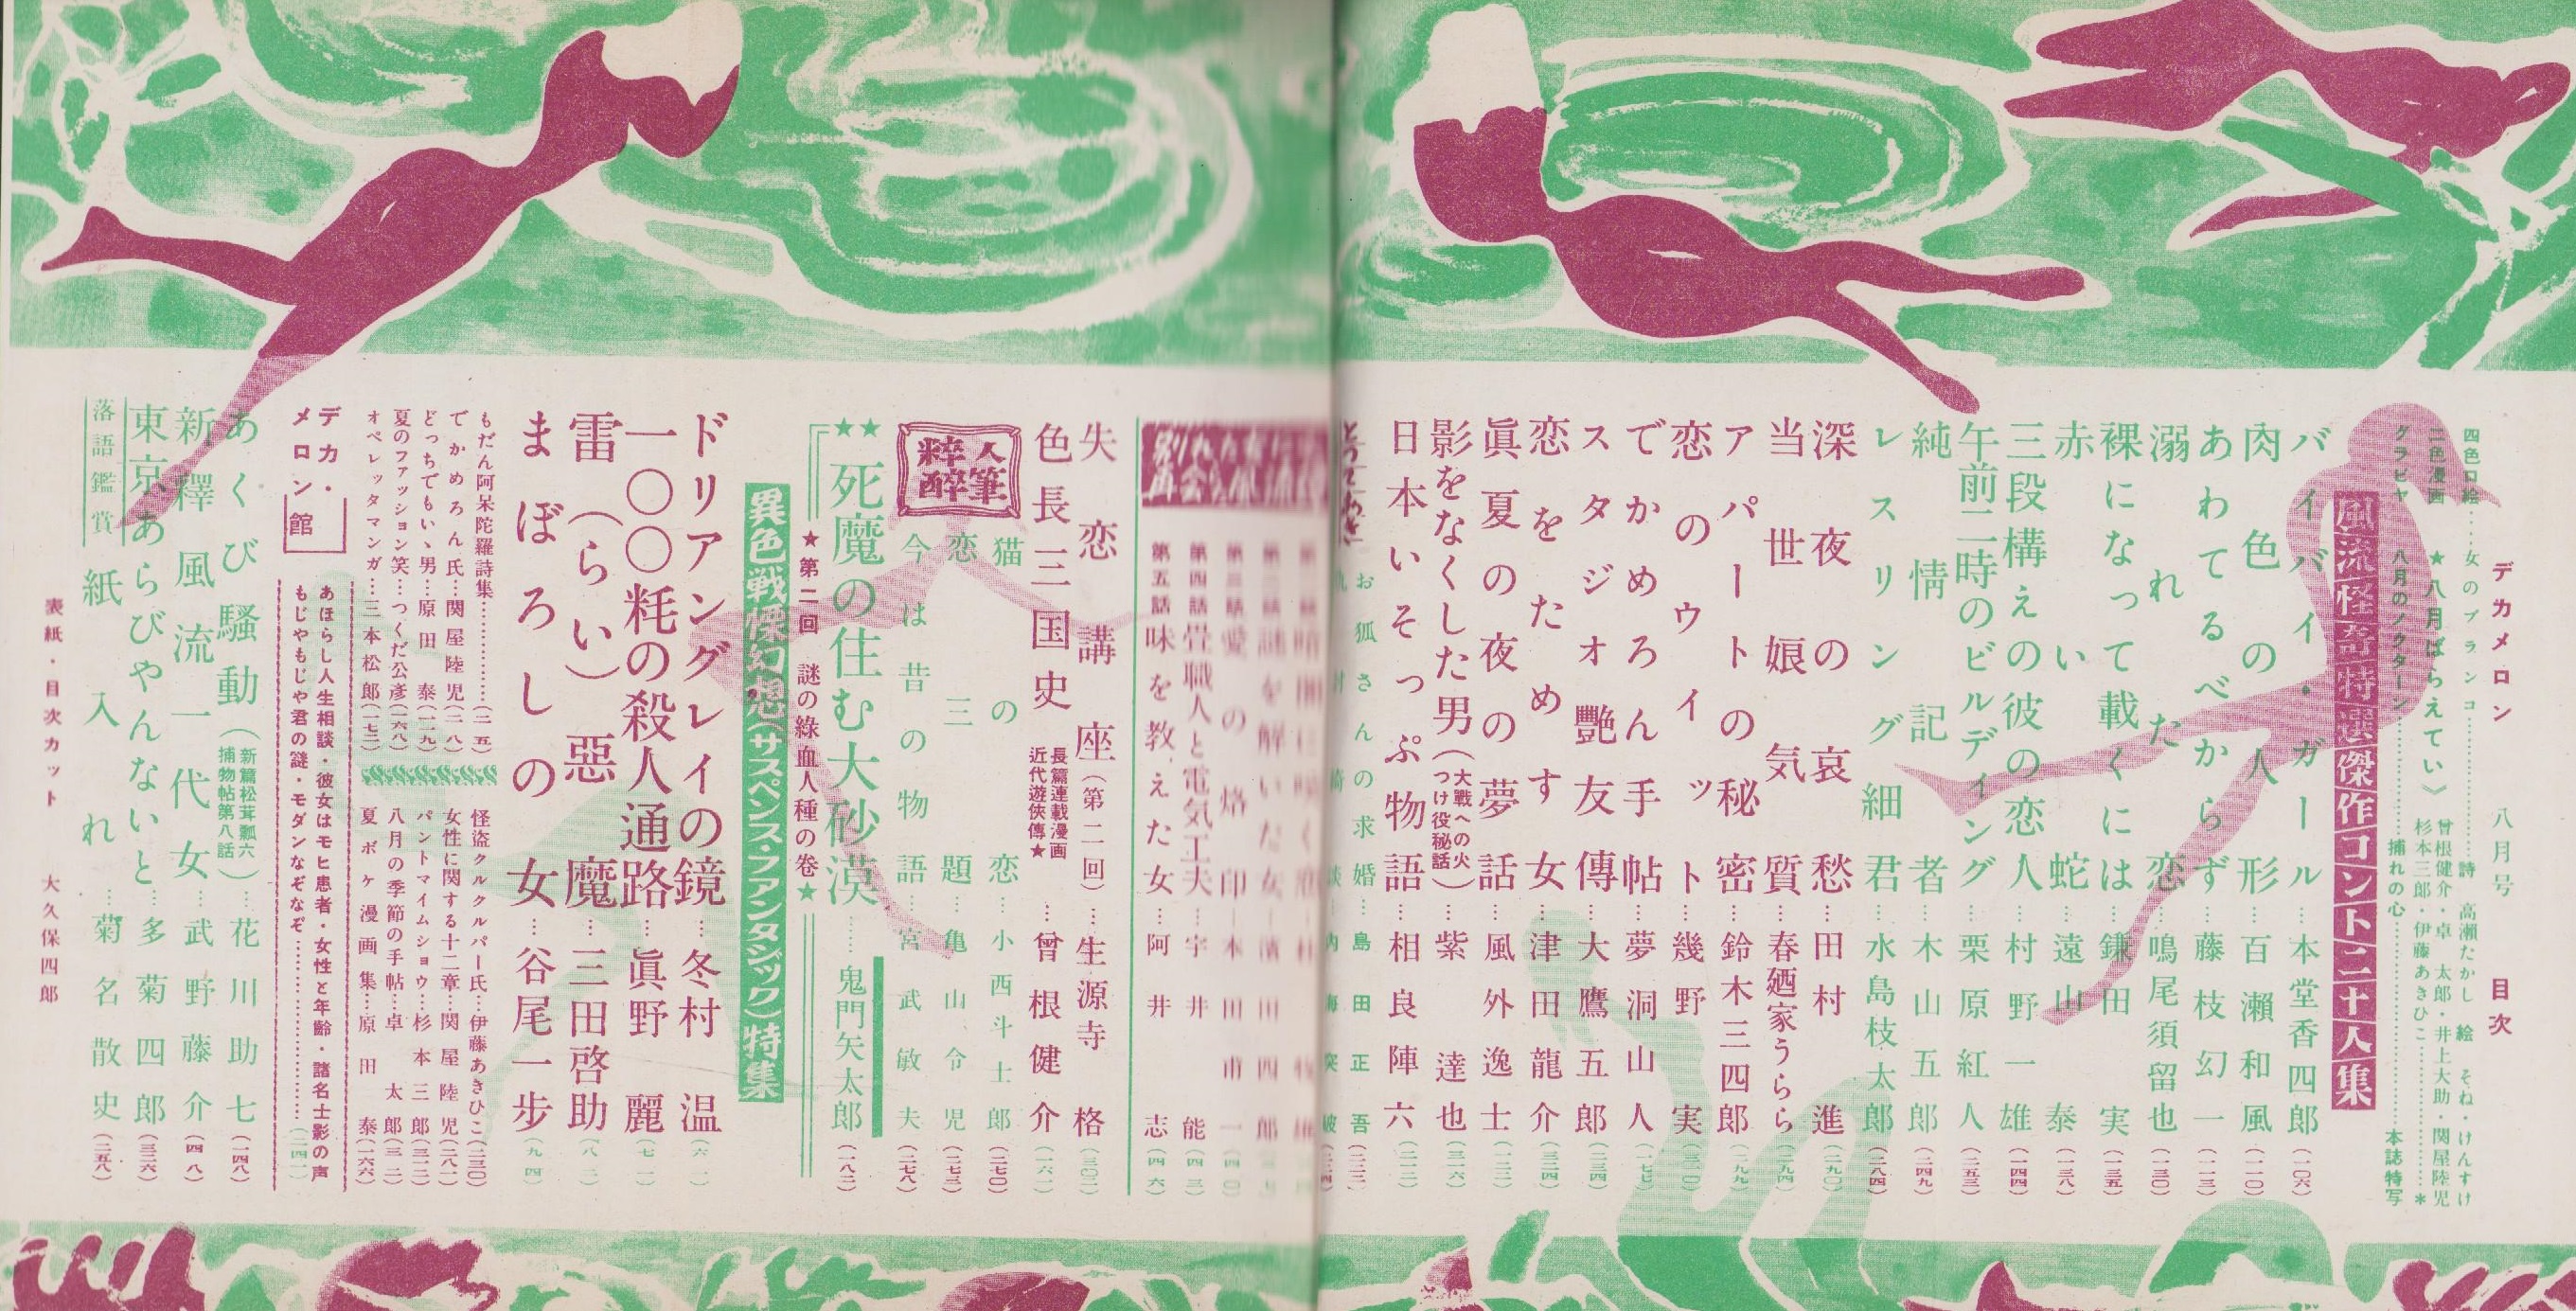 デカメロン 八月号 目次
四色口絵……女のブランコ……詩 高瀬たかし 絵 そね・けんすけ
二色漫画 ★八月ばらえてい〉 曾根健介・卓 太郎・井上大助・関屋陸児 杉本三郎・伊藤あきひこ……*
グラビヤ 八月のノクターン……捕れの心……本誌特写
風流怪奇特選傑作コント二十人集
バイバイ・ガール…本堂香四郎(一〇六)
肉色の人形…百瀬和風(一一〇)
あわてるべからず…藤枝幻一(一一三)
溺れた恋…鳴尾須留也(一三〇)
裸になって載くには…鎌田実(一三五)
赤い蛇…遠山泰(一三八)
三段構えの彼の恋人…村野一雄(一四四)
午前二時のビルディング…栗原紅人(二五三)
純情記者…木山五郎(二四九)
レスリング細君…水島枝太郎(二八四)
深夜の哀愁…田村進(二九〇)
当世娘気質…春廼家うらら(二九四)
アパートの秘密…鈴木三四郎(二九九)
恋のウイット…幾野実(三一〇)
でかめろん手帖…夢洞山人(一七七)
スタジオ艶友傳…大鷹五郎(二三四)
恋をためす女…津田龍介(三二四)
眞夏の夜の夢話…風外逸士(一二二)
影をなくした男(大戰への火つけ役秘話)…紫達也(三一六)
日本いそっぷ物語…相良陣六(二一二)
お狐さんの求婚…島田正吾(二二二)
第三話 愛の烙印…本田甫一(四〇)
第四話 畳職人と電気工夫…宇井能(四三)
第五話 味を教えた女…阿井志(四六)
失恋講座(第二回)…生源寺格(三〇二)
色長三国史 長篇連載漫画 近代遊侠傳★…曾根健介(一六一)
粋人酔筆
猫の恋…小西斗士郎(二七〇)
恋三題…亀山令児(二七三)
今は昔の物語…宮武敏夫(二七八)
★★死魔の住む大砂漠……鬼門矢太郎(一八二)
★第二回 謎の綠血人種の巻★
異色戦慄幻想(サスペンス・ファンタジック)特集
ドリアングレイの鏡…冬村温(六一)
一〇〇粍の殺人通路…眞野麗(七一)
雷(らい)悪魔…三田啓助(八二)
まぼろしの女…谷尾一歩(九四)
もだん阿呆陀羅詩集……(二五)
でかめろん氏…関屋陸児(二八)
どっちでもいゝ男…原田泰(一一九)
夏のファッション笑…つくだ公彦(一六八)
オペレッタマンガ…三本松郎(一七二)
怪盗クルクルパー氏…伊藤あきひこ(二三〇)
女性に関する十二章…関屋陸児(二八一)
パントマイムショウ…杉本三郎(三一二)
八月の季節の手帖…卓太郎(三二)
夏ボケ漫画集…原田泰(一六六)
デカ・メロン館
あほらし人生相談・彼女はモヒ患者・女性と年齢・諸名士影の声
もじやもじや君の謎・モダンなぞなぞ……(二四一)
あくび騒動(新篇松茸瓢六捕物帖第八話)…花川助七(一四八)
新釋風流一代女…武野藤介(四八)
東京あらびやんないと…多菊四郎(三二六)
落語鑑賞 紙入れ…菊名散史(二五八)
表紙・目次カット 大久保四郎